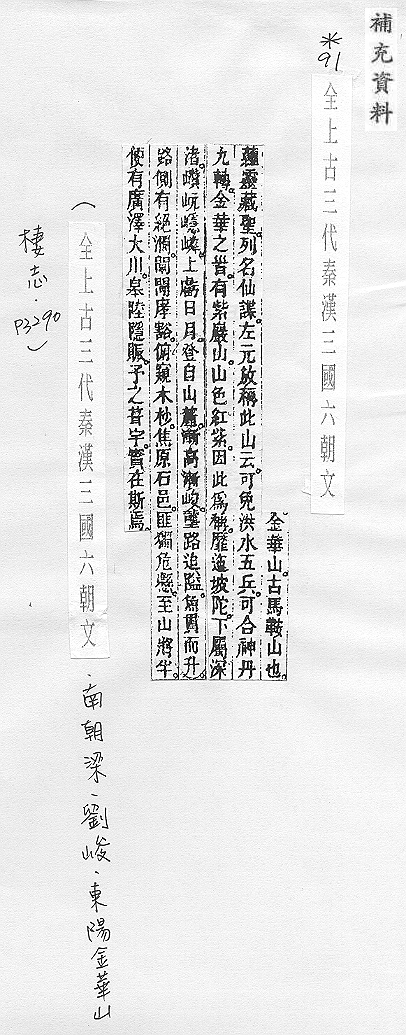 補充資料
*91
全上古三代秦漢三國六朝文
金華山古馬鞍山也。
蘊靈藏聖。列名仙諜。左元放稱此山云。可免洪水五兵。可合神丹
九轉。金華之首有紫巖山。山色紅紫。因此爲稱。靡迤坡陀。下屬深
渚。巑岏隱嶙。上虧日月。登自山麓。漸高漸峻。壟路迫隘。魚貫而升。
路側有絕澗。庨豁。俯窺木杪。焦原石邑。匪獨危懸。至山將半
便有廣澤大川。皋陸隱賑。予之葺宇。實在斯焉。
(全上古三代秦漢三國六朝文.南朝梁.劉峻.東陽金華山
棲志.P3290)